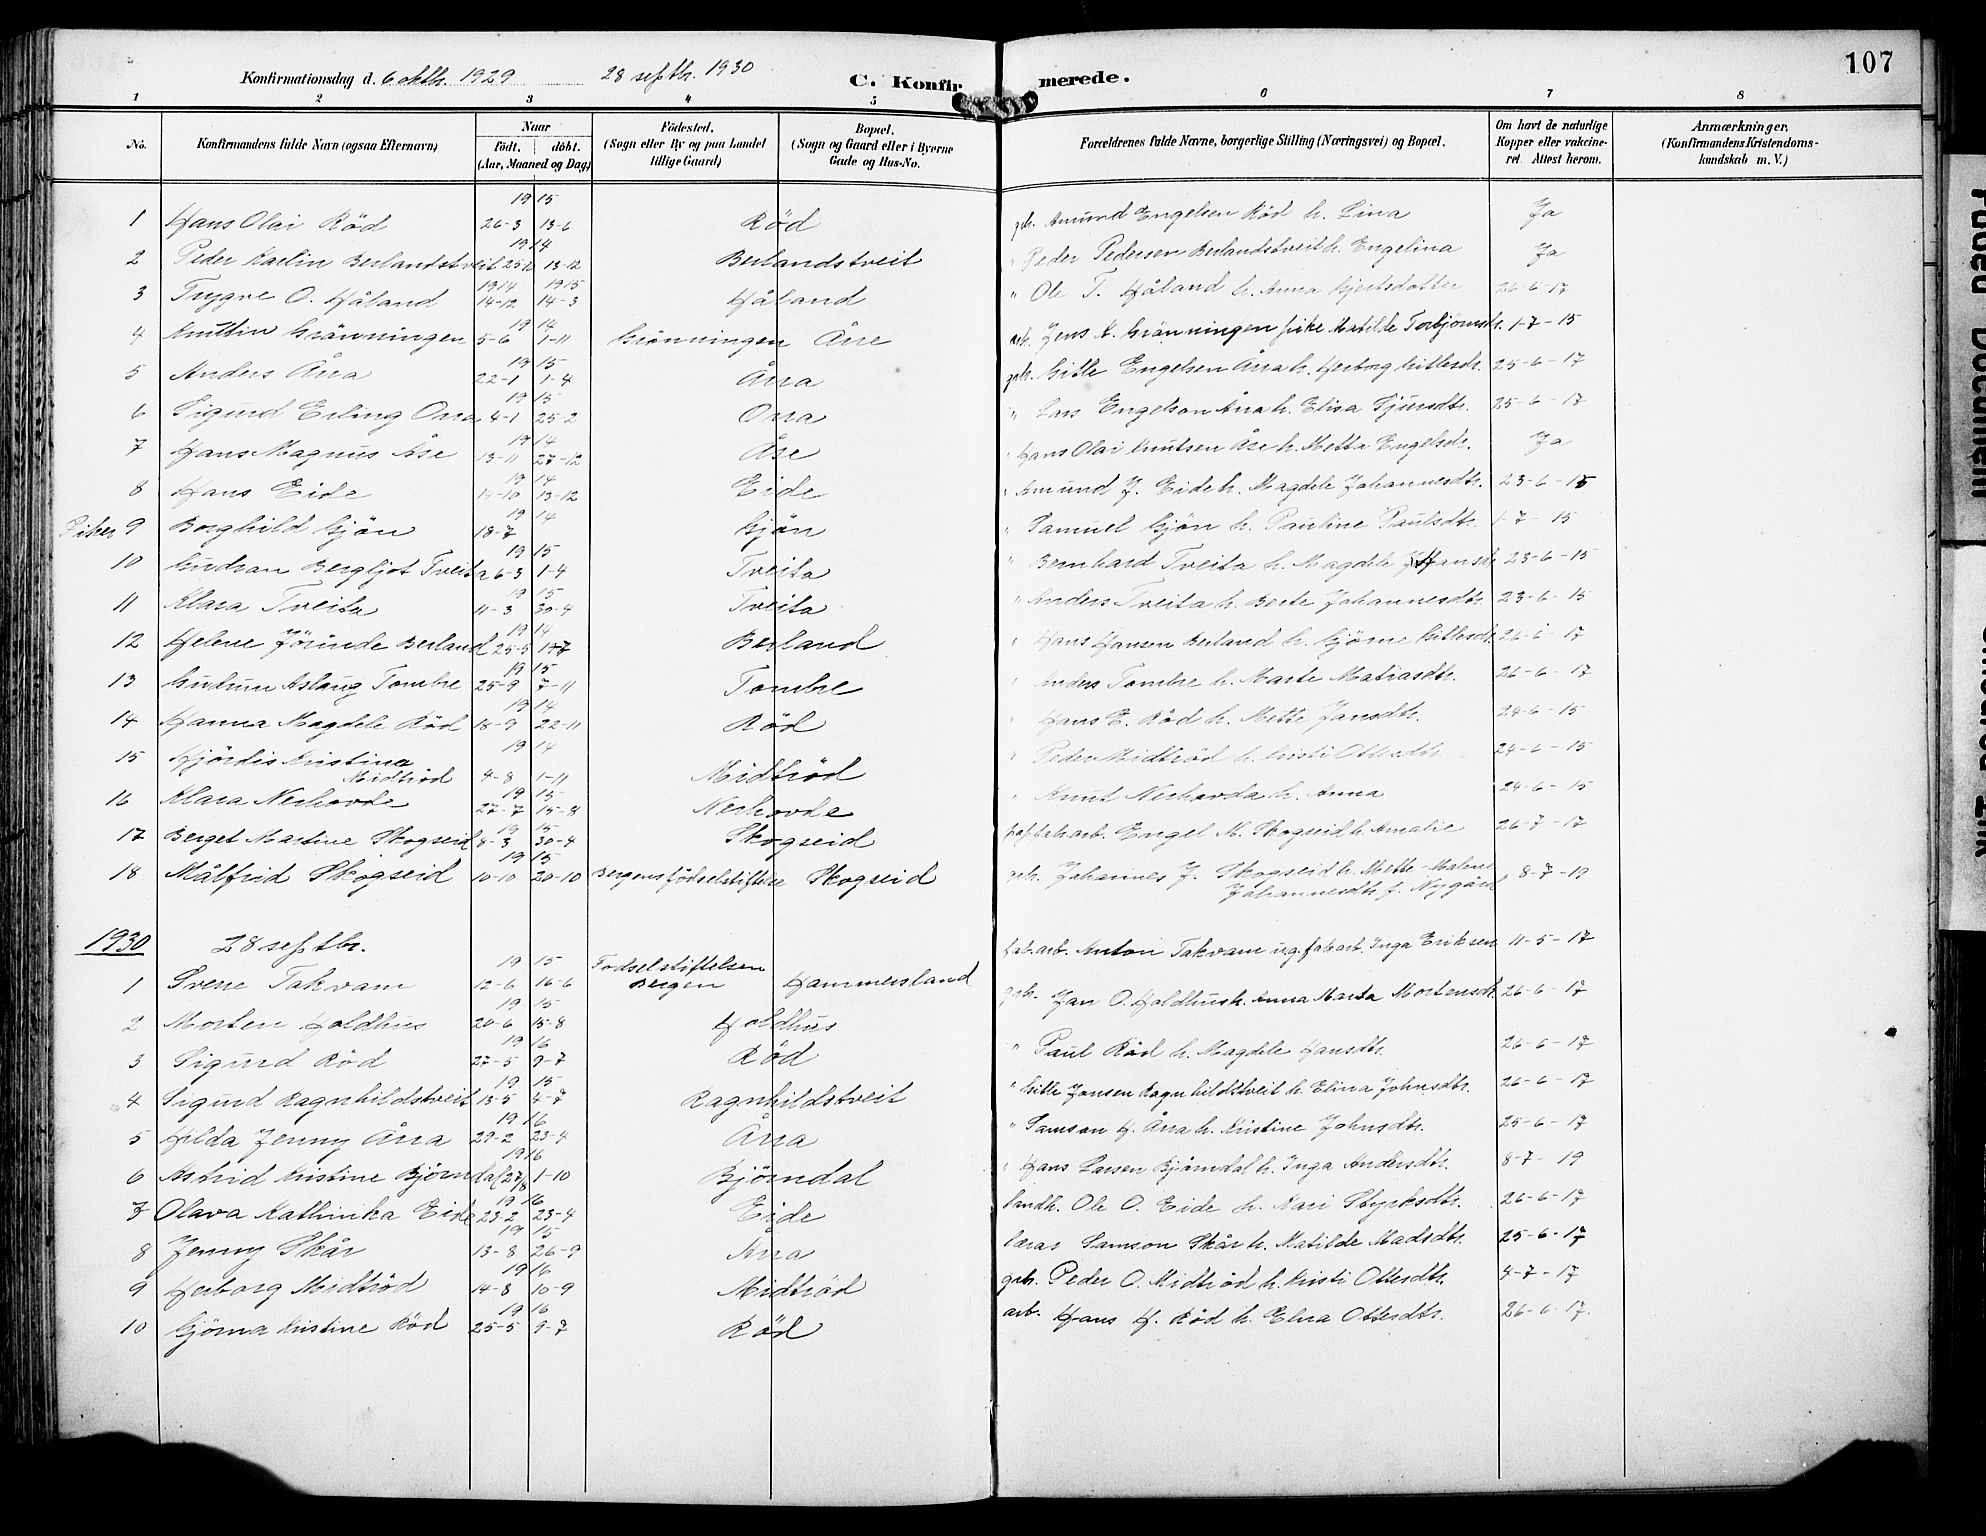 107
Konfirmationsdag d. 6 oktbr. 1929 28 septbr. 1930 C. Konfirmerede.
1 2 3 4 5 6 7 8
No. Konfirmandens fulde Navn (ogsaa Efternavn) Naar Født. døbt. (Aar, Maaned og Dag) Födested. (Sogn eller By og paa Landet tillige Gaard) Bopæl. (Sogn og Gaard eller i Byerne Gade og Hus-No. Forældrenes fulde Navne, borgerlige Stilling (Næringsvei) og Bopæl. Om havt de naturlige Kopper eller vakcineret. Attest herom. Anmærkninger. (Konfirmandens Kristendomskundskab m. V.)
19 15
1 Hans Olai Röd 26-3 13-6 Röd gbr. Amund Engelsen Röd h. Lina Ja
19 14
2 Peder Karlin Berlandstveit 25-10 13-12 Berlandstveit " Peder Pedersen Berlandstveit h. Engelina Ja
1914 1915
3 Trygve O. Håland 14-12 14-3 Håland " Ole T. Håland h. Anna Gjertsdotter 26-6-17
19 14
4 Knuttin Grönningen 5-6 1-11 Grönningen Åse arb. Jens K. Grönningen pike Matilde Torbjörnsdr. 1-7-15
19 15
5 Anders Åra 22-1 1-4 Åra gbr. Gitle Engelsen Åra h. Herborg Gitlesdr. 25-6-17
19 15
6 Sigurd Erling Orra 4-1 25-2 Orra " Lars Engelsen Åra h. Elisa Sjursdtr. 25-6-17
19 14
7 Hans Magnus Åse 13-11 27-12 Åse " Hans Olai Knutsen Åse h. Metta Engelsdr. Ja
19 14
8 Hans Eide 14-10 13-12 Eide " Amund J. Eide h. Magdele Johannesdtr. 23-6-15
19 14
Piker 9 Borghild Gjön 18-7 Gjön " Samuel Gjön h. Pauline Paulsdtr. 1-7-15
19 15
10 Gudrun Bergljot Tveita 6-3 1-4 Tveita " Bernhard Tveita h. Magdele Hansdr. 23-6-15
19 15
11 Klara Tveita 11-3 30-4 Tveita " Anders Tveita h. Berte Johannesdtr. 23-6-15
19 14
12 Helene Jörinde Berland 25-5 19-7 Berland " Hans Hansen Berland h. Gjörne Gitlesdr. 26-6-17
19 15
13 Gutrun Aslaug Tombre 25-9 7-11 Tombre " Anders Tombre h. Marte Matiasdtr. 26-6-17
19 14
14 Hanna Magdele Röd 18-9 22-11 Röd " Hans E. Röd h. Mette Jansdtr. 24-6-15
19 14
15 Hjördis Kristina Midtröd 4-8 1-11 Midtröd " Peder Midtröd h. Kristi Ottersdtr. 24-6-15
19 15
16 Klara Nerhovde 27-7 15-8 Nerhovde " Knut Nerhovda h. Anna 24-6-15
19 15
17 Berget Martine Skogseid 8-3 30-4 Skogseid fabrarb. Engel M. Skogseid h. Amalie 26-7-17
19 15
18 Målfrid Skogseid 10-10 20-10 Bergens födselstiftelse Skogseid gbr. Johannes J. Skogseid h. Mette Malene Johannesdtr. f. Nygård 8-7-19
1930 28 septbr.
19 15
1 Sverre Takvam 12-6 16-6 Fodselstiftelsen Bergen Hammersland fab.arb. Anton Takvam ug. fabarb. Inga Eriksen 11-5-17
19 15
2 Morten Holdhus 20-6 15-8 Holdhus gbr. Jan O. Holdhus h. Anna Marta Mortensdr. 26-6-17
19 16
3 Sigurd Röd 27-5 9-7 Röd " Paul Röd h. Magdele Hansdtr. 26-6-17
19 15
4 Sigurd Ragnhildstveit 13-5 4-7 Ragnhildstveit " Gitle Jansen Ragnhildstveit h. Elina Johnsdtr. 26-6-17
19 16
5 Hilda Jenny Åra 29-2 23-4 Åra " Samson H. Åra h. Kristine Johnsdtr. 25-6-17
19 16
6 Astrid Kristine Björndal 27/8 1-10 Björndal " Hans Larsen Björndal h. Inga Andersdtr. 8-7-19
19 16
7 Olava Kathinka Eide 23-2 23-4 Eide landh. Ole O. Eide h. Kari Styrksdtr. 26-6-17
19 15
8 Jenny Skår 13-8 26-9 Åra lærar Samson Skår h. Matilde Madsdtr. 25-6-17
19 16
9 Herborg Midtröd 14-8 10-9 Midtröd gbr. Peder O. Midtröd h. Kristi Ottersdtr. 4-7-17
19 16
10 Gjörna Kristine Röd 25-5 9-7 Röd arb. Hans H. Röd h. Elina Ottersdtr. 26-6-17.